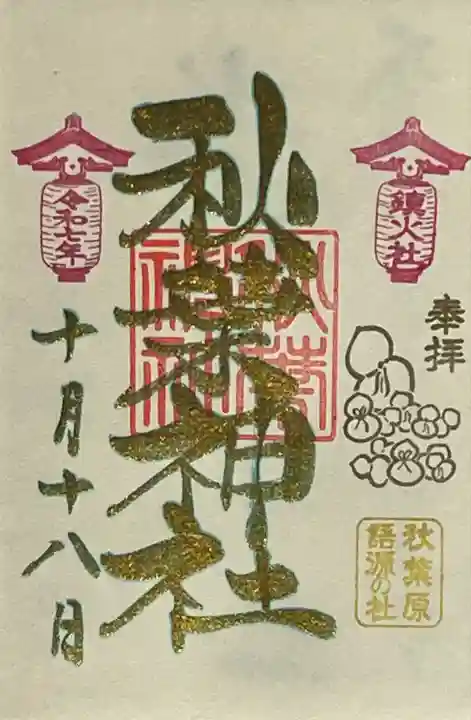 鎮火社
奉拝
秋葉原
語源の社
秋葉神社
令和七年
十月十八日